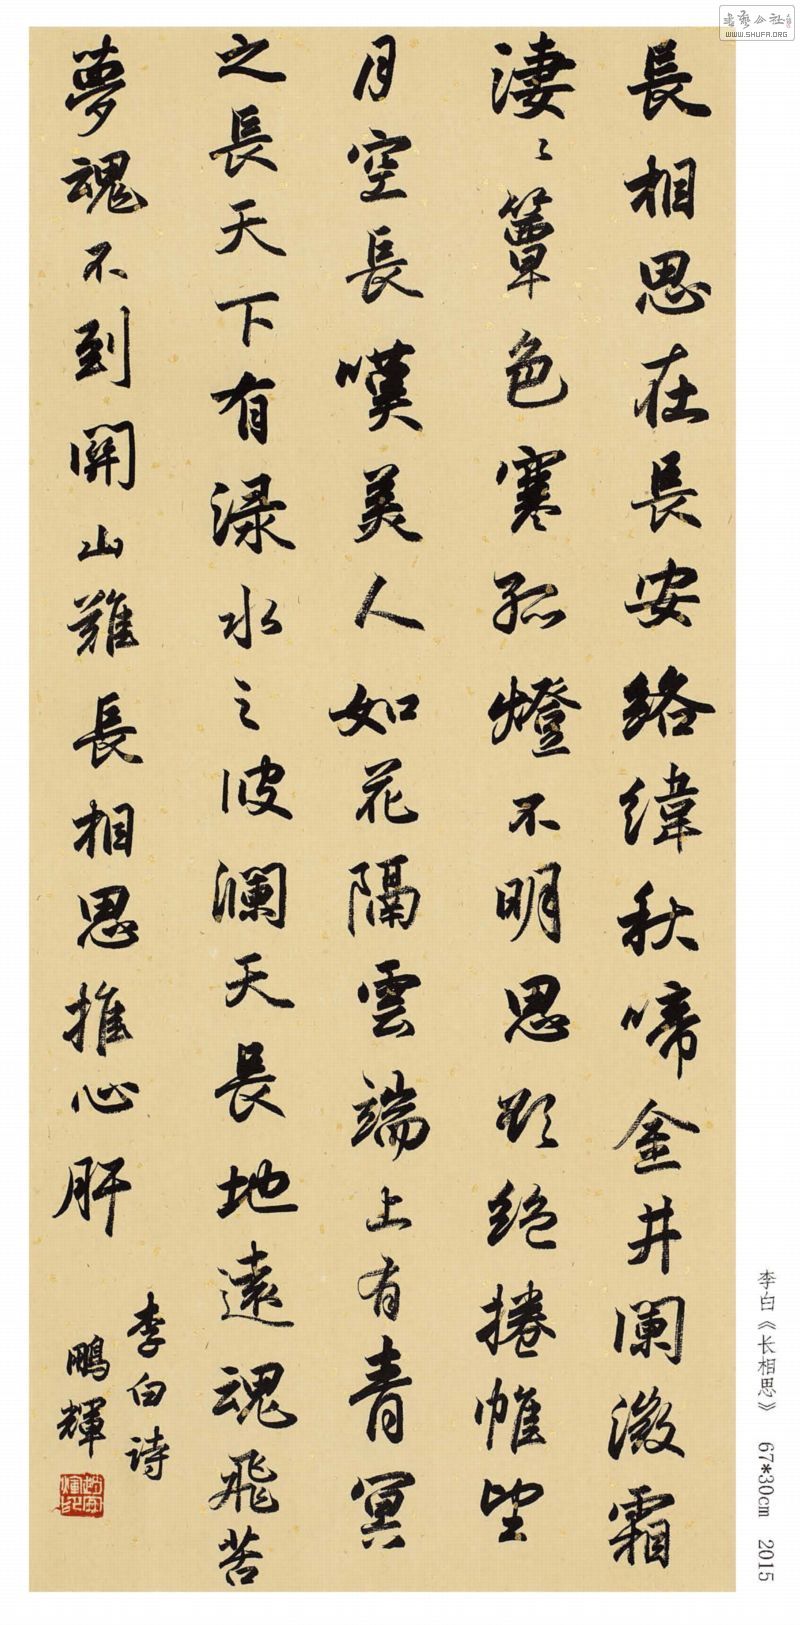 長相思在長安絡緯秋啼金井闌微霜
淒〻簟色寒孤燈不明思欲絕捲帷望
月空長嘆美人如花隔雲端上有青冥
之長天下有渌水之波瀾天長地遠魂飛苦
夢魂不到關山難長相思摧心肝
李白詩
鵬輝
李白《长相思》 67*30cm 2015
書藝公社
WWW.SHUFA.ORG